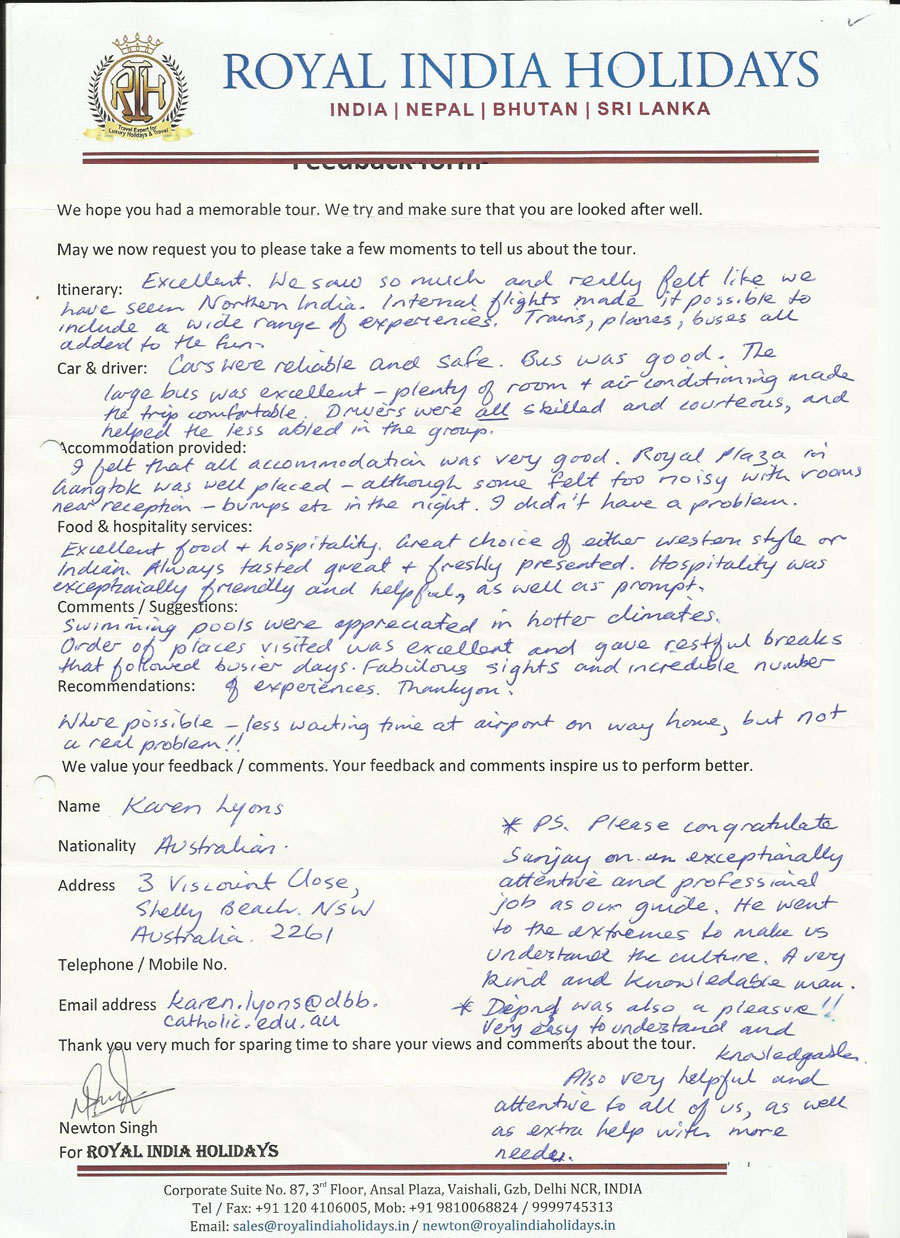 RIH
Travel Expert for
Luxury Holidays & Travel
ROYAL INDIA HOLIDAYS
INDIA | NEPAL | BHUTAN | SRI LANKA
Feedback form
We hope you had a memorable tour. We try and make sure that you are looked after well.
May we now request you to please take a few moments to tell us about the tour.
Itinerary: Excellent. We saw so much and really felt like we
have seen Northern India. Internal flights made it possible to
include a wide range of experiences. Trains, planes, buses all
added to the fun.
Car & driver: Cars were reliable and safe. Bus was good. The
large bus was excellent – plenty of room + air conditioning made
the trip comfortable. Drivers were all skilled and courteous, and
helped the less abled in the group.
Accommodation provided:
I felt that all accommodation was very good. Royal Plaza in
Gangtok was well placed – although some felt too noisy with rooms
near reception – bumps etc in the night. I didn't have a problem.
Food & hospitality services:
Excellent food + hospitality. Great choice of either western style or
Indian. Always tasted great + freshly presented. Hospitality was
exceptionally friendly and helpful, as well as prompt.
Comments / Suggestions:
Swimming pools were appreciated in hotter climates.
Order of places visited was excellent and gave restful breaks
that followed busier days. Fabulous sights and incredible number
Recommendations: of experiences. Thankyou!
Where possible – less waiting time at airport on way home, but not
a real problem!!
We value your feedback / comments. Your feedback and comments inspire us to perform better.
Name Karen Lyons
Nationality Australian.
Address 3 Viscount Close,
Shelly Beach. NSW
Australia. 2261
Telephone / Mobile No.
Email address karen.lyons@dbb.
catholic.edu.au
* PS. Please congratulate
Sanjay on an exceptionally
attentive and professional
job as our guide. He went
to the extremes to make us
understand the culture. A very
kind and knowledable man.
* was also a pleasure!!
Very easy to understand and
knowledgable.
Also very helpful and
attentive to all of us, as well
as extra help with more
needer.
Thank you very much for sparing time to share your views and comments about the tour.
Newton Singh
For ROYAL INDIA HOLIDAYS
Corporate Suite No. 87, 3rd Floor, Ansal Plaza, Vaishali, Gzb, Delhi NCR, INDIA
Tel / Fax: +91 120 4106005, Mob: +91 9810068824 / 9999745313
Email: sales@royalindiaholidays.in / newton@royalindiaholidays.in